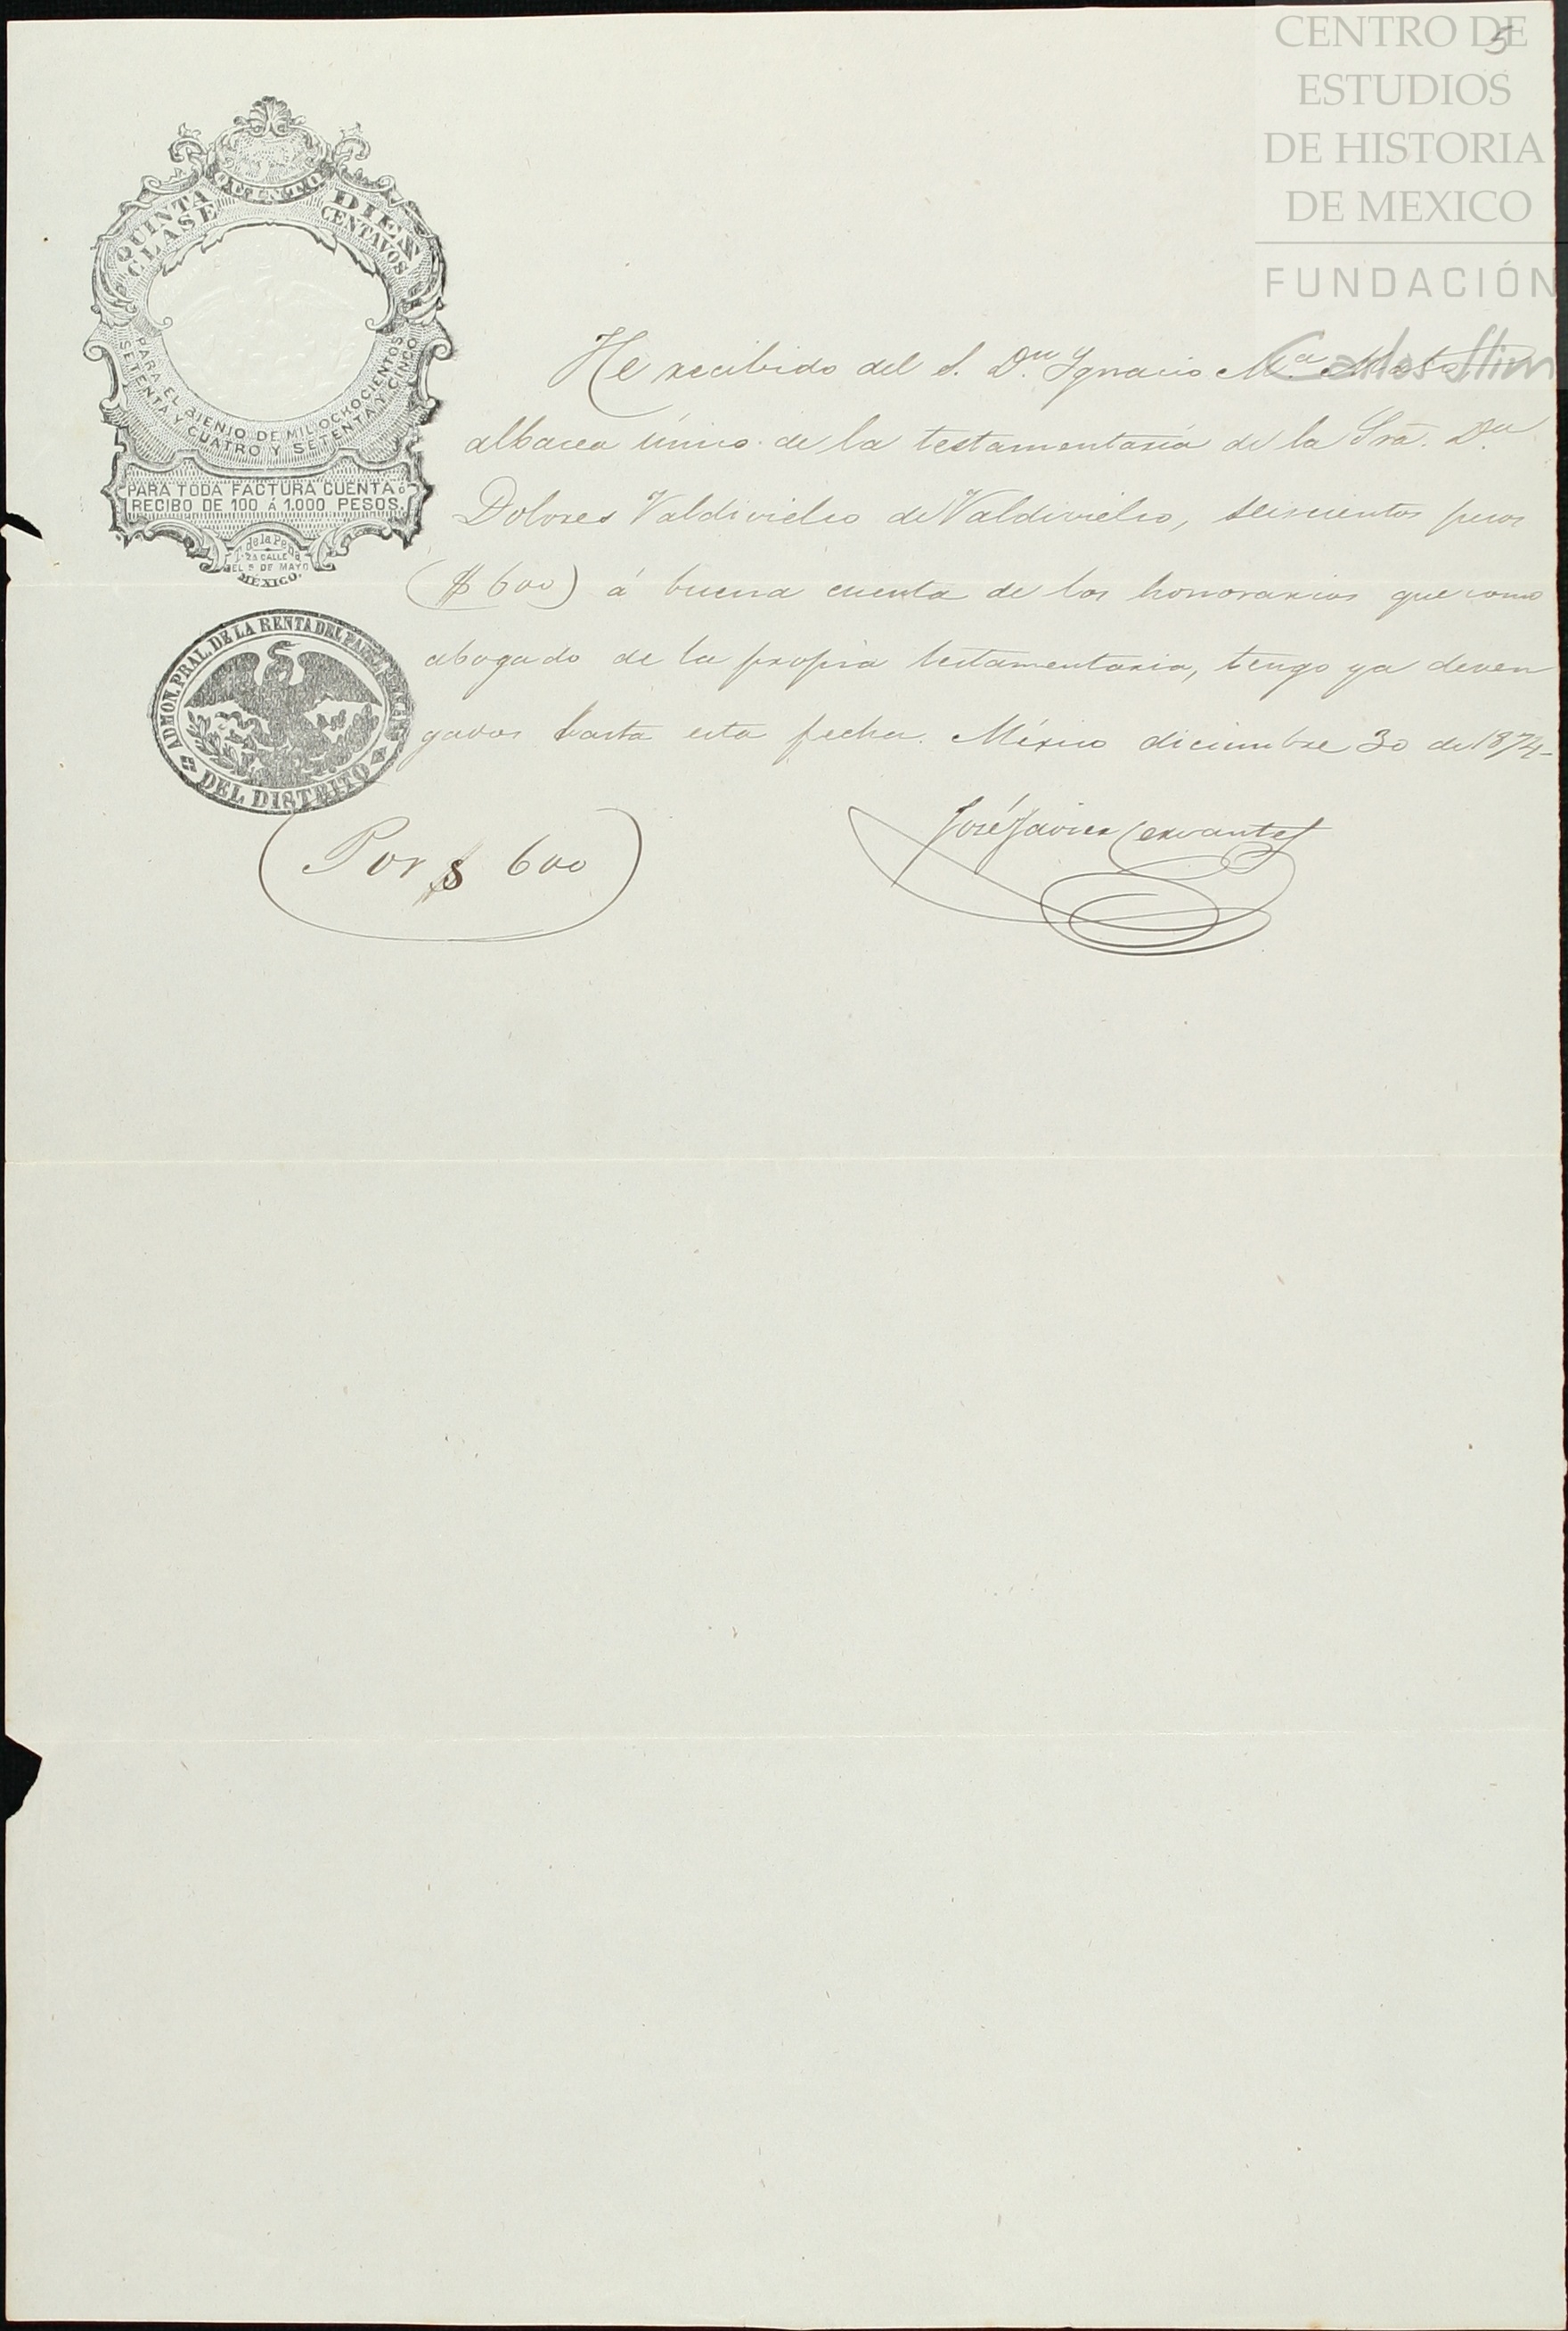 CENTRO DE
ESTUDIOS
DE HISTORIA
DE MEXICO
FUNDACIÓN
Carlos Slim
5
QUINTO
QUINTA CLASE
DIEZ CENTAVOS
PARA EL BIENIO DE MIL OCHOCIENTOS
SETENTA Y CUATRO Y SETENTA Y CINCO
PARA TODA FACTURA CUENTA ó
RECIBO DE 100 á 1.000 PESOS.
T. de la Peña
2a CALLE
DEL 5 DE MAYO
MÉXICO.
He recibido del S. Dn. Ygnacio Ma.
albacea único de la testamentaría de la Sra. Da.
Dolores Valdivielso de Valdivielso, seiscientos pesos
($ 600) á buena cuenta de los honorarios que como
abogado de la propia testamentaria, tengo ya deven
gados hasta esta fecha. México diciembre 30 de 1874-
ADMON. PRAL. DE LA RENTA DEL
DEL DISTRITO
José Javier Cervantes
(Por $ 600)